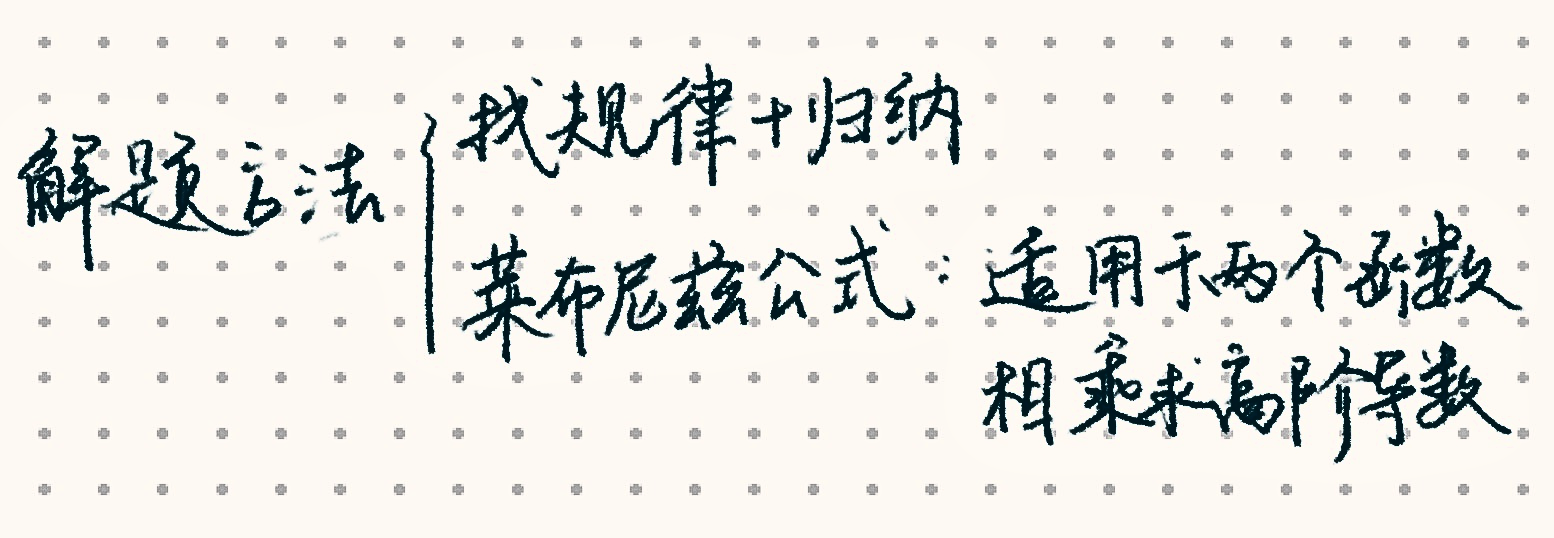 解题方法
找规律+归纳
莱布尼兹公式：适用于两个函数
相乘求高阶导数